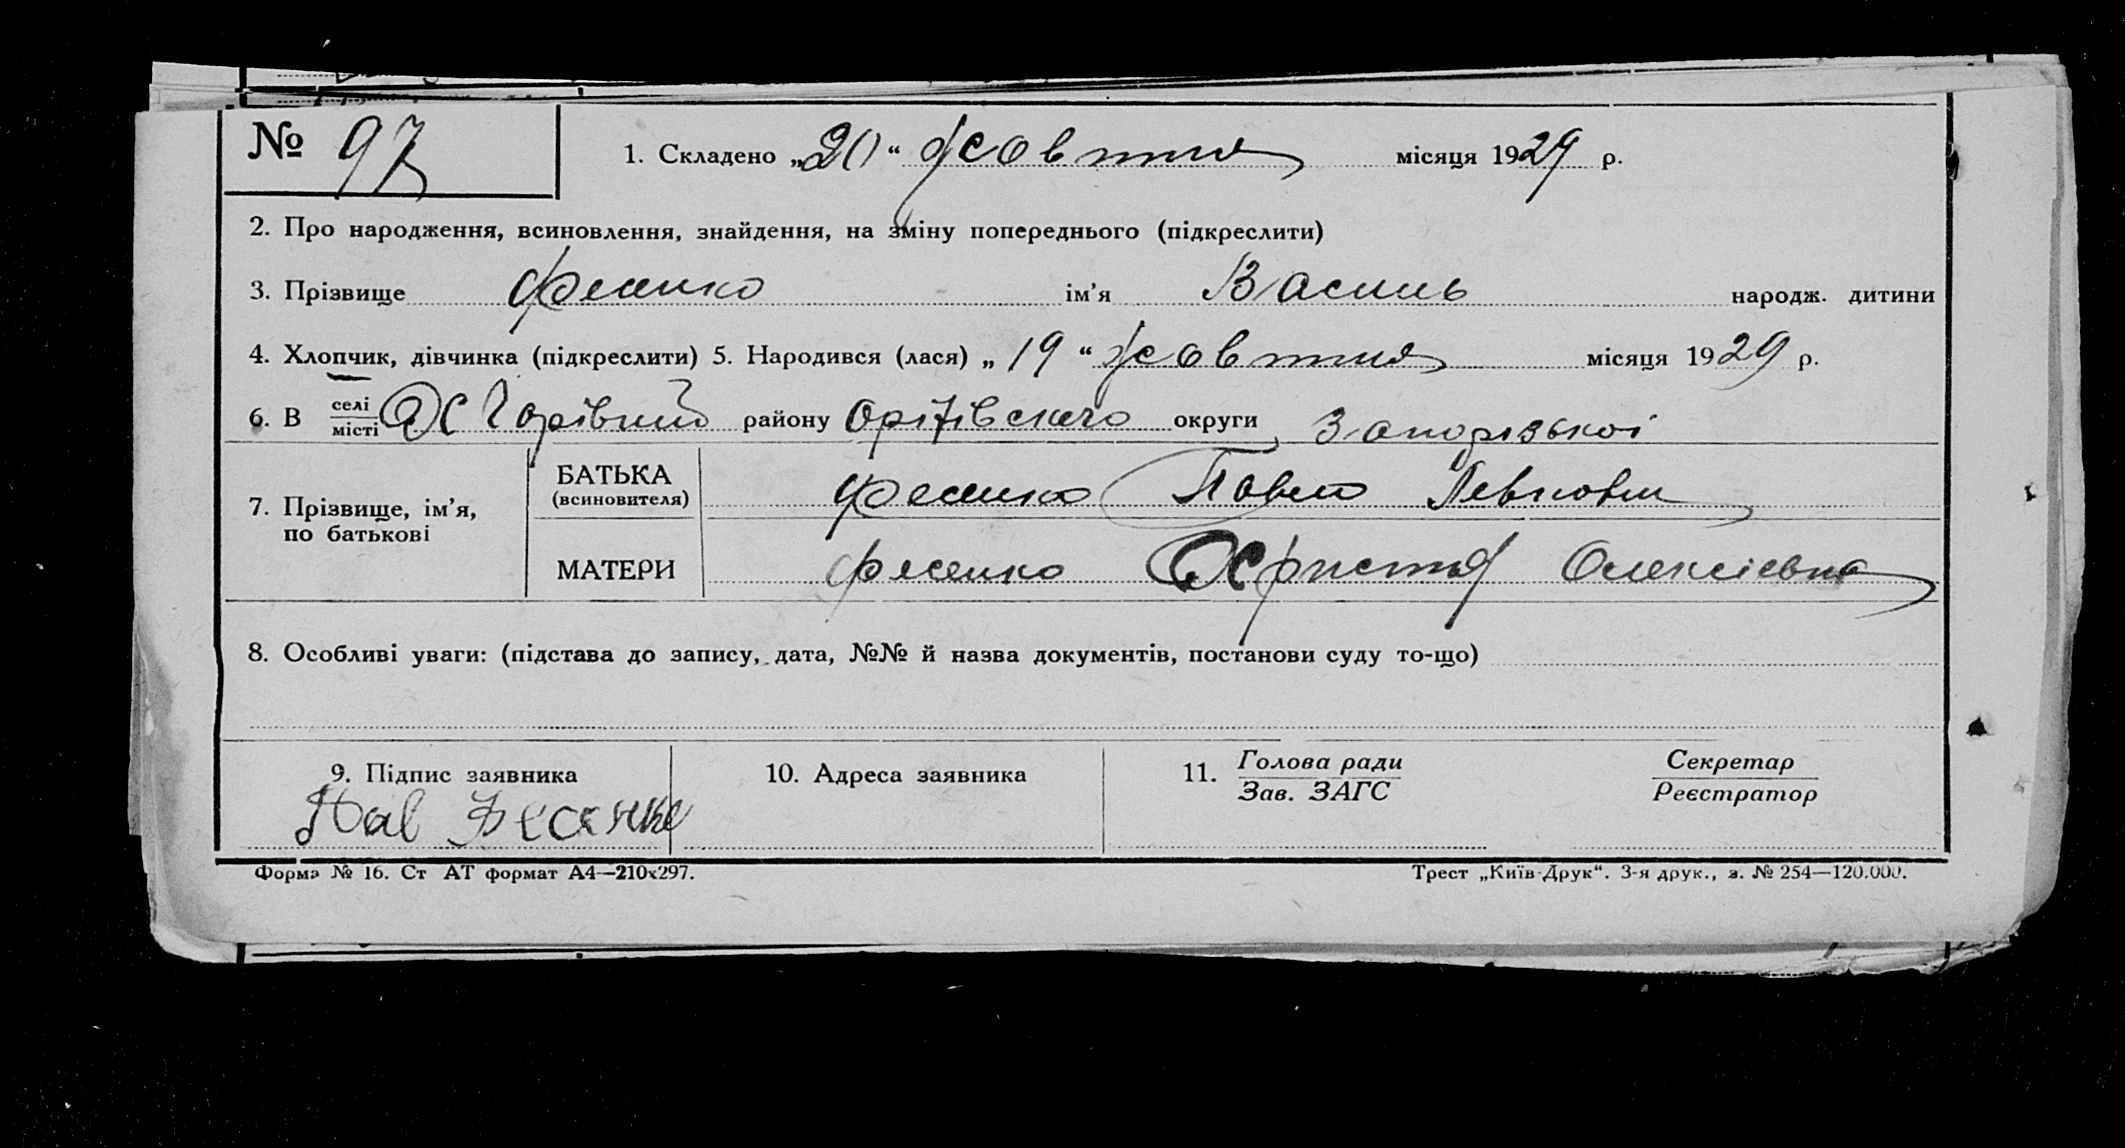 № 97 1. Складено „20“ жовтня місяця 1929 р.
2. Про народження, всиновлення, знайдення, на зміну попереднього (підкреслити)
3. Прізвище Фесенко ім’я Василь народж. дитини
4. Хлопчик, дівчинка (підкреслити) 5. Народився (лася) „19“ жовтня місяця 1929 р.
6. В селі місті району округи Запорізької
7. Прізвище, ім’я, по батькові
БАТЬКА (всиновителя) Фесенко Павло Левкович
МАТЕРИ Фесенко Христя Олексіевна
8. Особливі уваги: (підстава до запису, дата, №№ й назва документів, постанови суду то-що)
9. Підпис заявника 10. Адреса заявника 11. Голова ради Секретар
Зав. ЗАГС Реєстратор
Пав Фесенко
Форма № 16. Ст АТ формат А4—210х297. Трест „Київ-Друк“. 3-я друк., з. № 254—120.000.